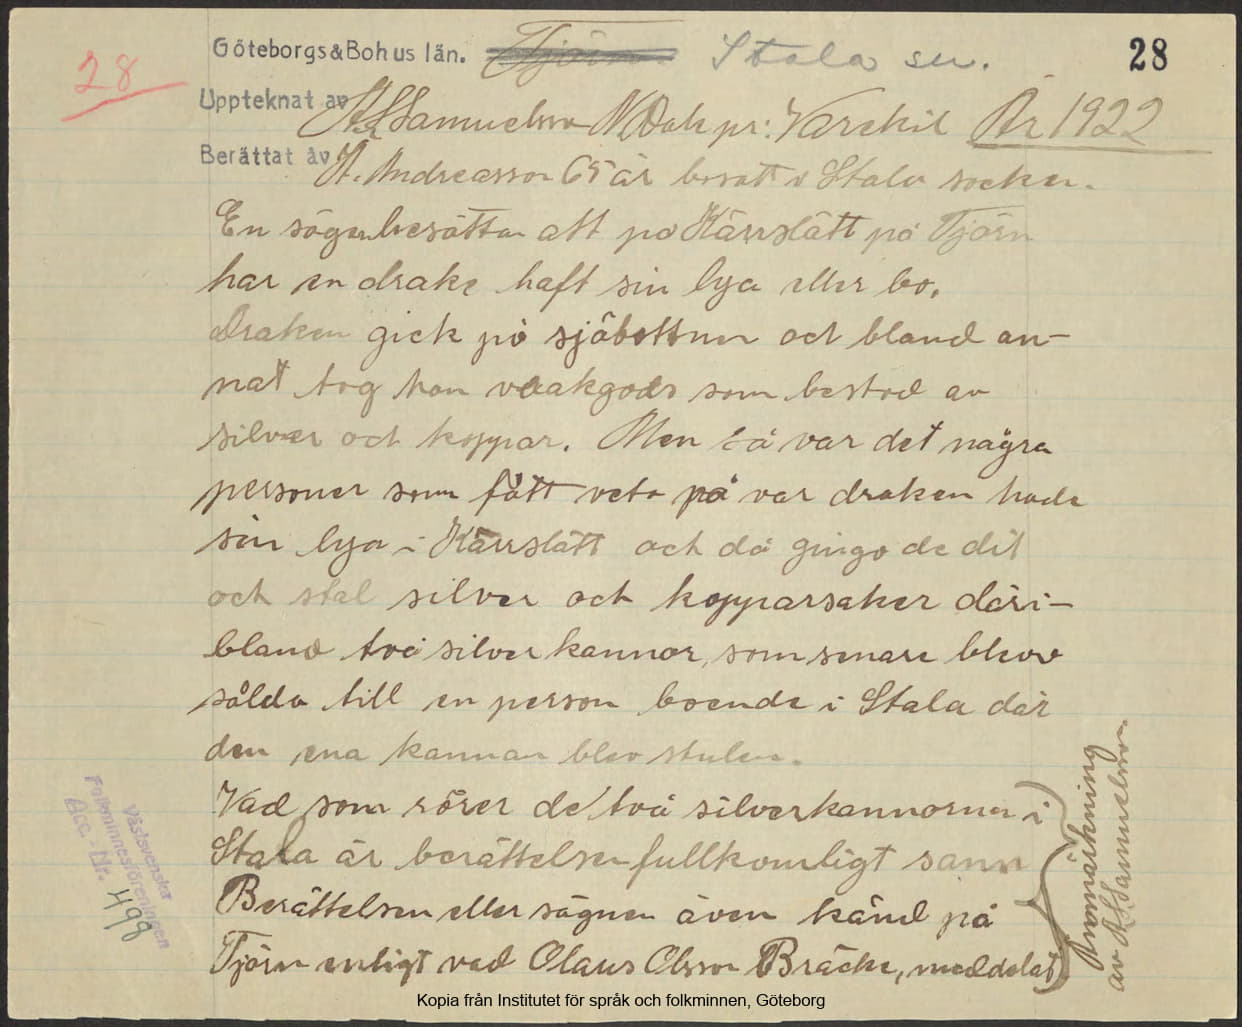 28
Göteborgs & Bohus län. Tjörn. Stala sn. 28
Upptecknat av A L Samuelsson N. Dal pr: Varekil År 1922
Berättat av A. Andreasson 65 år bosatt i Stala socken.
En sägen berättar att på Kärrslätt på Tjörn
har en drake haft sin lya eller bo.
Draken gick på sjöbottnen och bland an-
nat tog han vrakgods som bestod av
silver och koppar. Men så var det några
personer som fått veta på var draken hade
sin lya i Kärrslätt och då gingo de dit
och stal silver och kopparsaker däri-
bland två silverkannor, som senare blevo
sålda till en person boende i Stala där
den ena kannan blev stulen.
Vad som rörer de två silverkannorna i
Stala är berättelsen fullkomligt sann
Berättelsen eller sägnen även känd på
Tjörn enligt vad Olaus Olsson Bräcke, meddelat
Anmärkning
av A L Samuelsson
Västsvenska
Folkminnesföreningen
Acc.-Nr. 498
Kopia från Institutet för språk och folkminnen, Göteborg